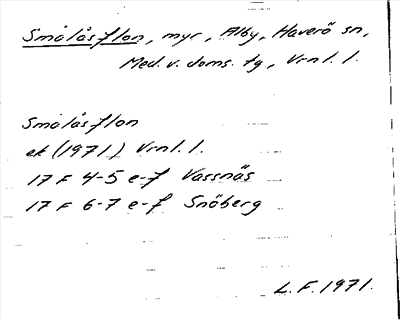 Smålåsflon, myr, Alby, Haverö sn,
Med. v. doms. tg, Vrnl. l.
Smålåsflon
ek (1971) Vrnl. l.
17 F 4-5 e-f Vassnäs
17 F 6-7 e-f Snöberg
L. F. 1971.